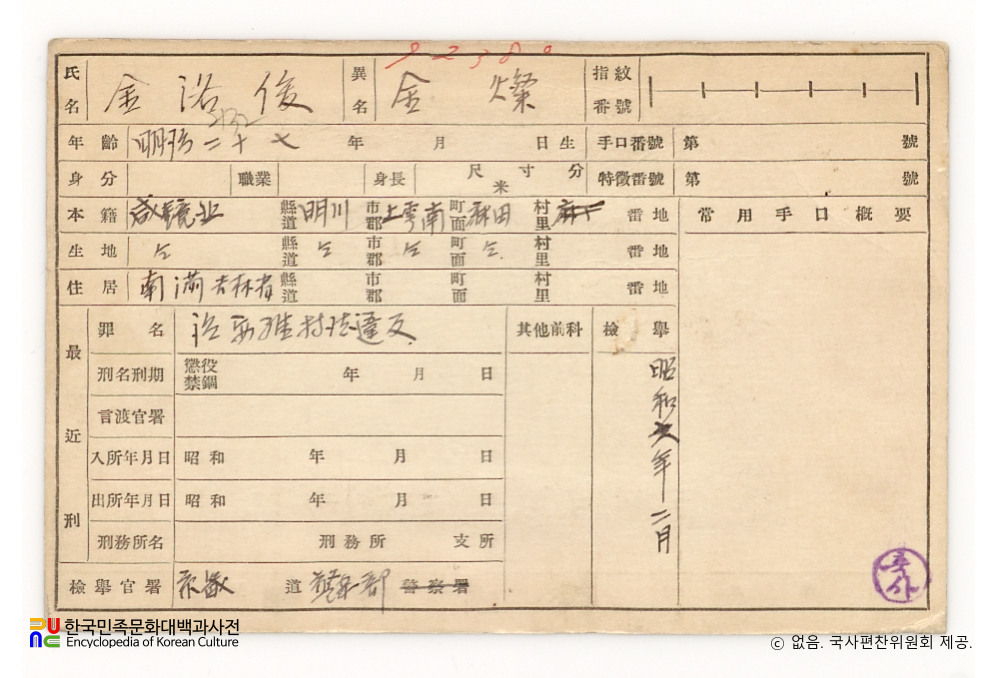 92380
氏名 金洛俊 異名 金燦 指紋番號
年齡 明治二十七年 月 日生 手口番號 第 號
身分 職業 身長 尺寸分 米 特徵番號 第 號
本籍 咸鏡北 縣道 明川 市郡 上雲南 町面 麻田 村里 番地 常用手口概要
生地 仝 縣道 仝 市郡 仝 町面 仝 村里 番地
住居 南滿吉林省 縣道 市郡 町面 村里 番地
最近刑
罪名 治安維持法違反 其他前科 檢擧
刑名刑期 懲役 禁錮 年 月 日
昭和六年二月
言渡官署
入所年月日 昭和 年 月 日
出所年月日 昭和 年 月 日
刑務所名 刑務所 支所
檢擧官署 京畿 道 警察部 警察署
한국민족문화대백과사전
Encyclopedia of Korean Culture
ⓒ 없음. 국사편찬위원회 제공.